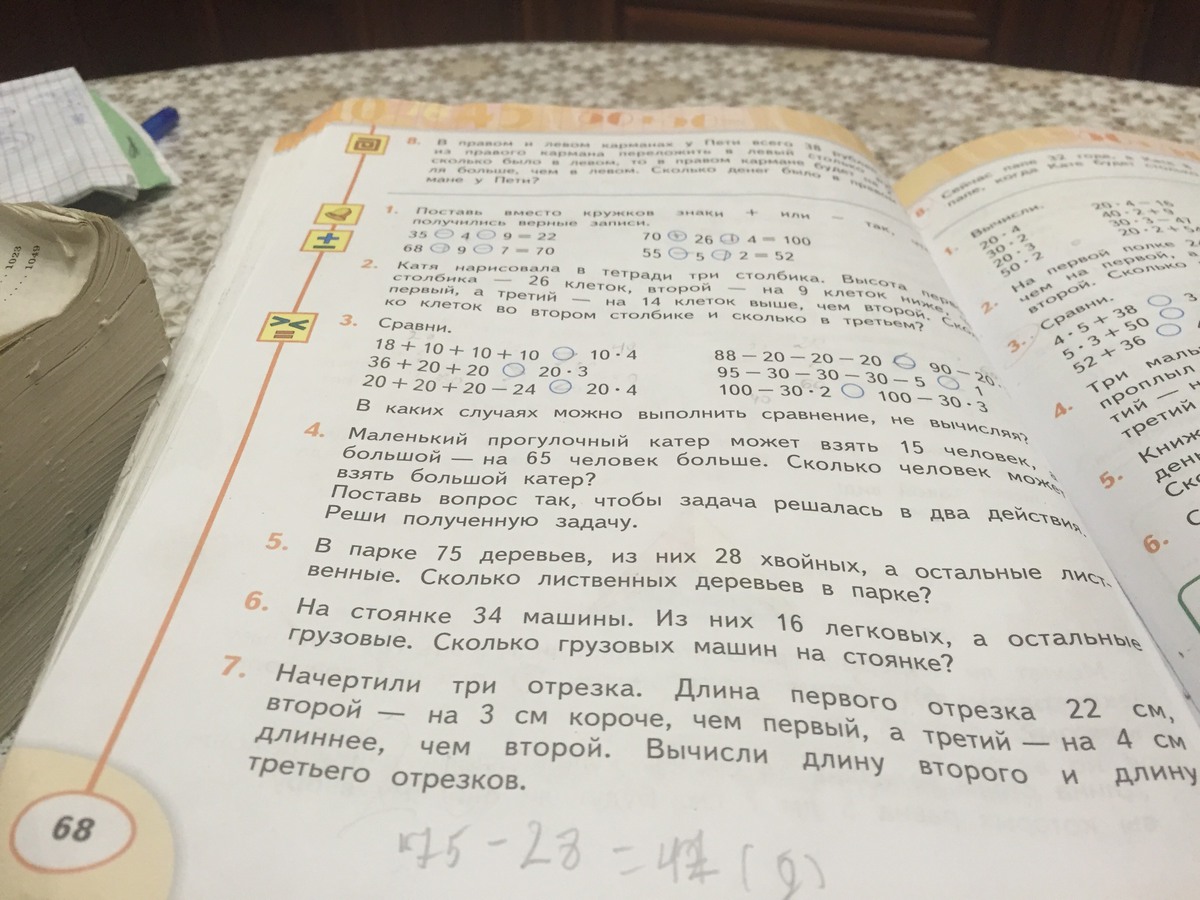 8. В правом и левом карманах у Пети всего 38 рублей
из правого кармана переложить в левый столько
сколько было в левом, то в правом кармане будет
ля больше, чем в левом. Сколько денег было в
мане у Пети?
1. Поставь вместо кружков знаки + или − так,
получились верные записи.
35 − 4 9 = 22 70 + 26 4 = 100
68 9 − 7 = 70 55 − 5 2 = 52
2. Катя нарисовала в тетради три столбика. Высота
столбика — 26 клеток, второй — на 9 клеток ниже,
первый, а третий — на 14 клеток выше, чем второй.
ко клеток во втором столбике и сколько в третьем?
3. Сравни.
18 + 10 + 10 + 10 10 · 4 88 − 20 − 20 − 20 90 − 20
36 + 20 + 20 20 · 3 95 − 30 − 30 − 30 − 5 1
20 + 20 + 20 − 24 20 · 4 100 − 30 · 2 100 − 30 · 3
В каких случаях можно выполнить сравнение, не вычисляя?
4. Маленький прогулочный катер может взять 15 человек,
большой — на 65 человек больше. Сколько человек может
взять большой катер?
Поставь вопрос так, чтобы задача решалась в два действия.
Реши полученную задачу.
5. В парке 75 деревьев, из них 28 хвойных, а остальные лист-
венные. Сколько лиственных деревьев в парке?
6. На стоянке 34 машины. Из них 16 легковых, а остальные
грузовые. Сколько грузовых машин на стоянке?
7. Начертили три отрезка. Длина первого отрезка 22 см,
второй — на 3 см короче, чем первый, а третий — на 4 см
длиннее, чем второй. Вычисли длину второго и длину
третьего отрезков.
75 − 28 = 47 (д)
68
8. Сейчас папе 32 года, а Кате
папе, когда Кате будет
1. Вычисли.
20 · 4 20 · 4 − 16
30 · 2 40 · 2 + 9
20 · 3 30 · 3 − 47
50 · 2 20 · 2 +
2. На первой полке
чем на первой, а
второй. Сколько
3. Сравни.
4 · 5 + 38 3
5 · 3 + 50
52 + 36
4. Три
проплыл
тий —
третий
5.
день
6.
1023
1049